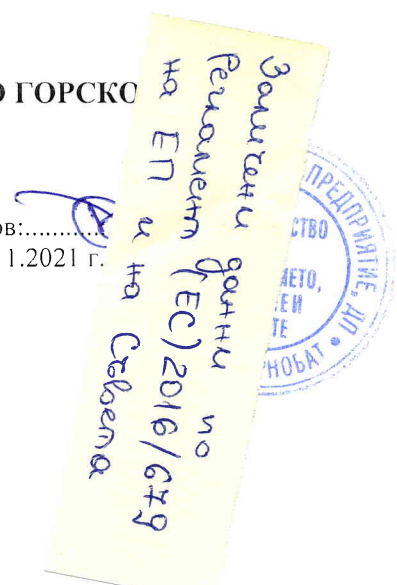 ГОРСКО
ов:............
1.2021 г.
Заличени данни по
Регламент (ЕС) 2016/679
на ЕП и на Съвета
ПРЕДПРИЯТИЕ, ДП
СТВО
МЕТО,
ТЕ И
ТЕ
РНОБАТ